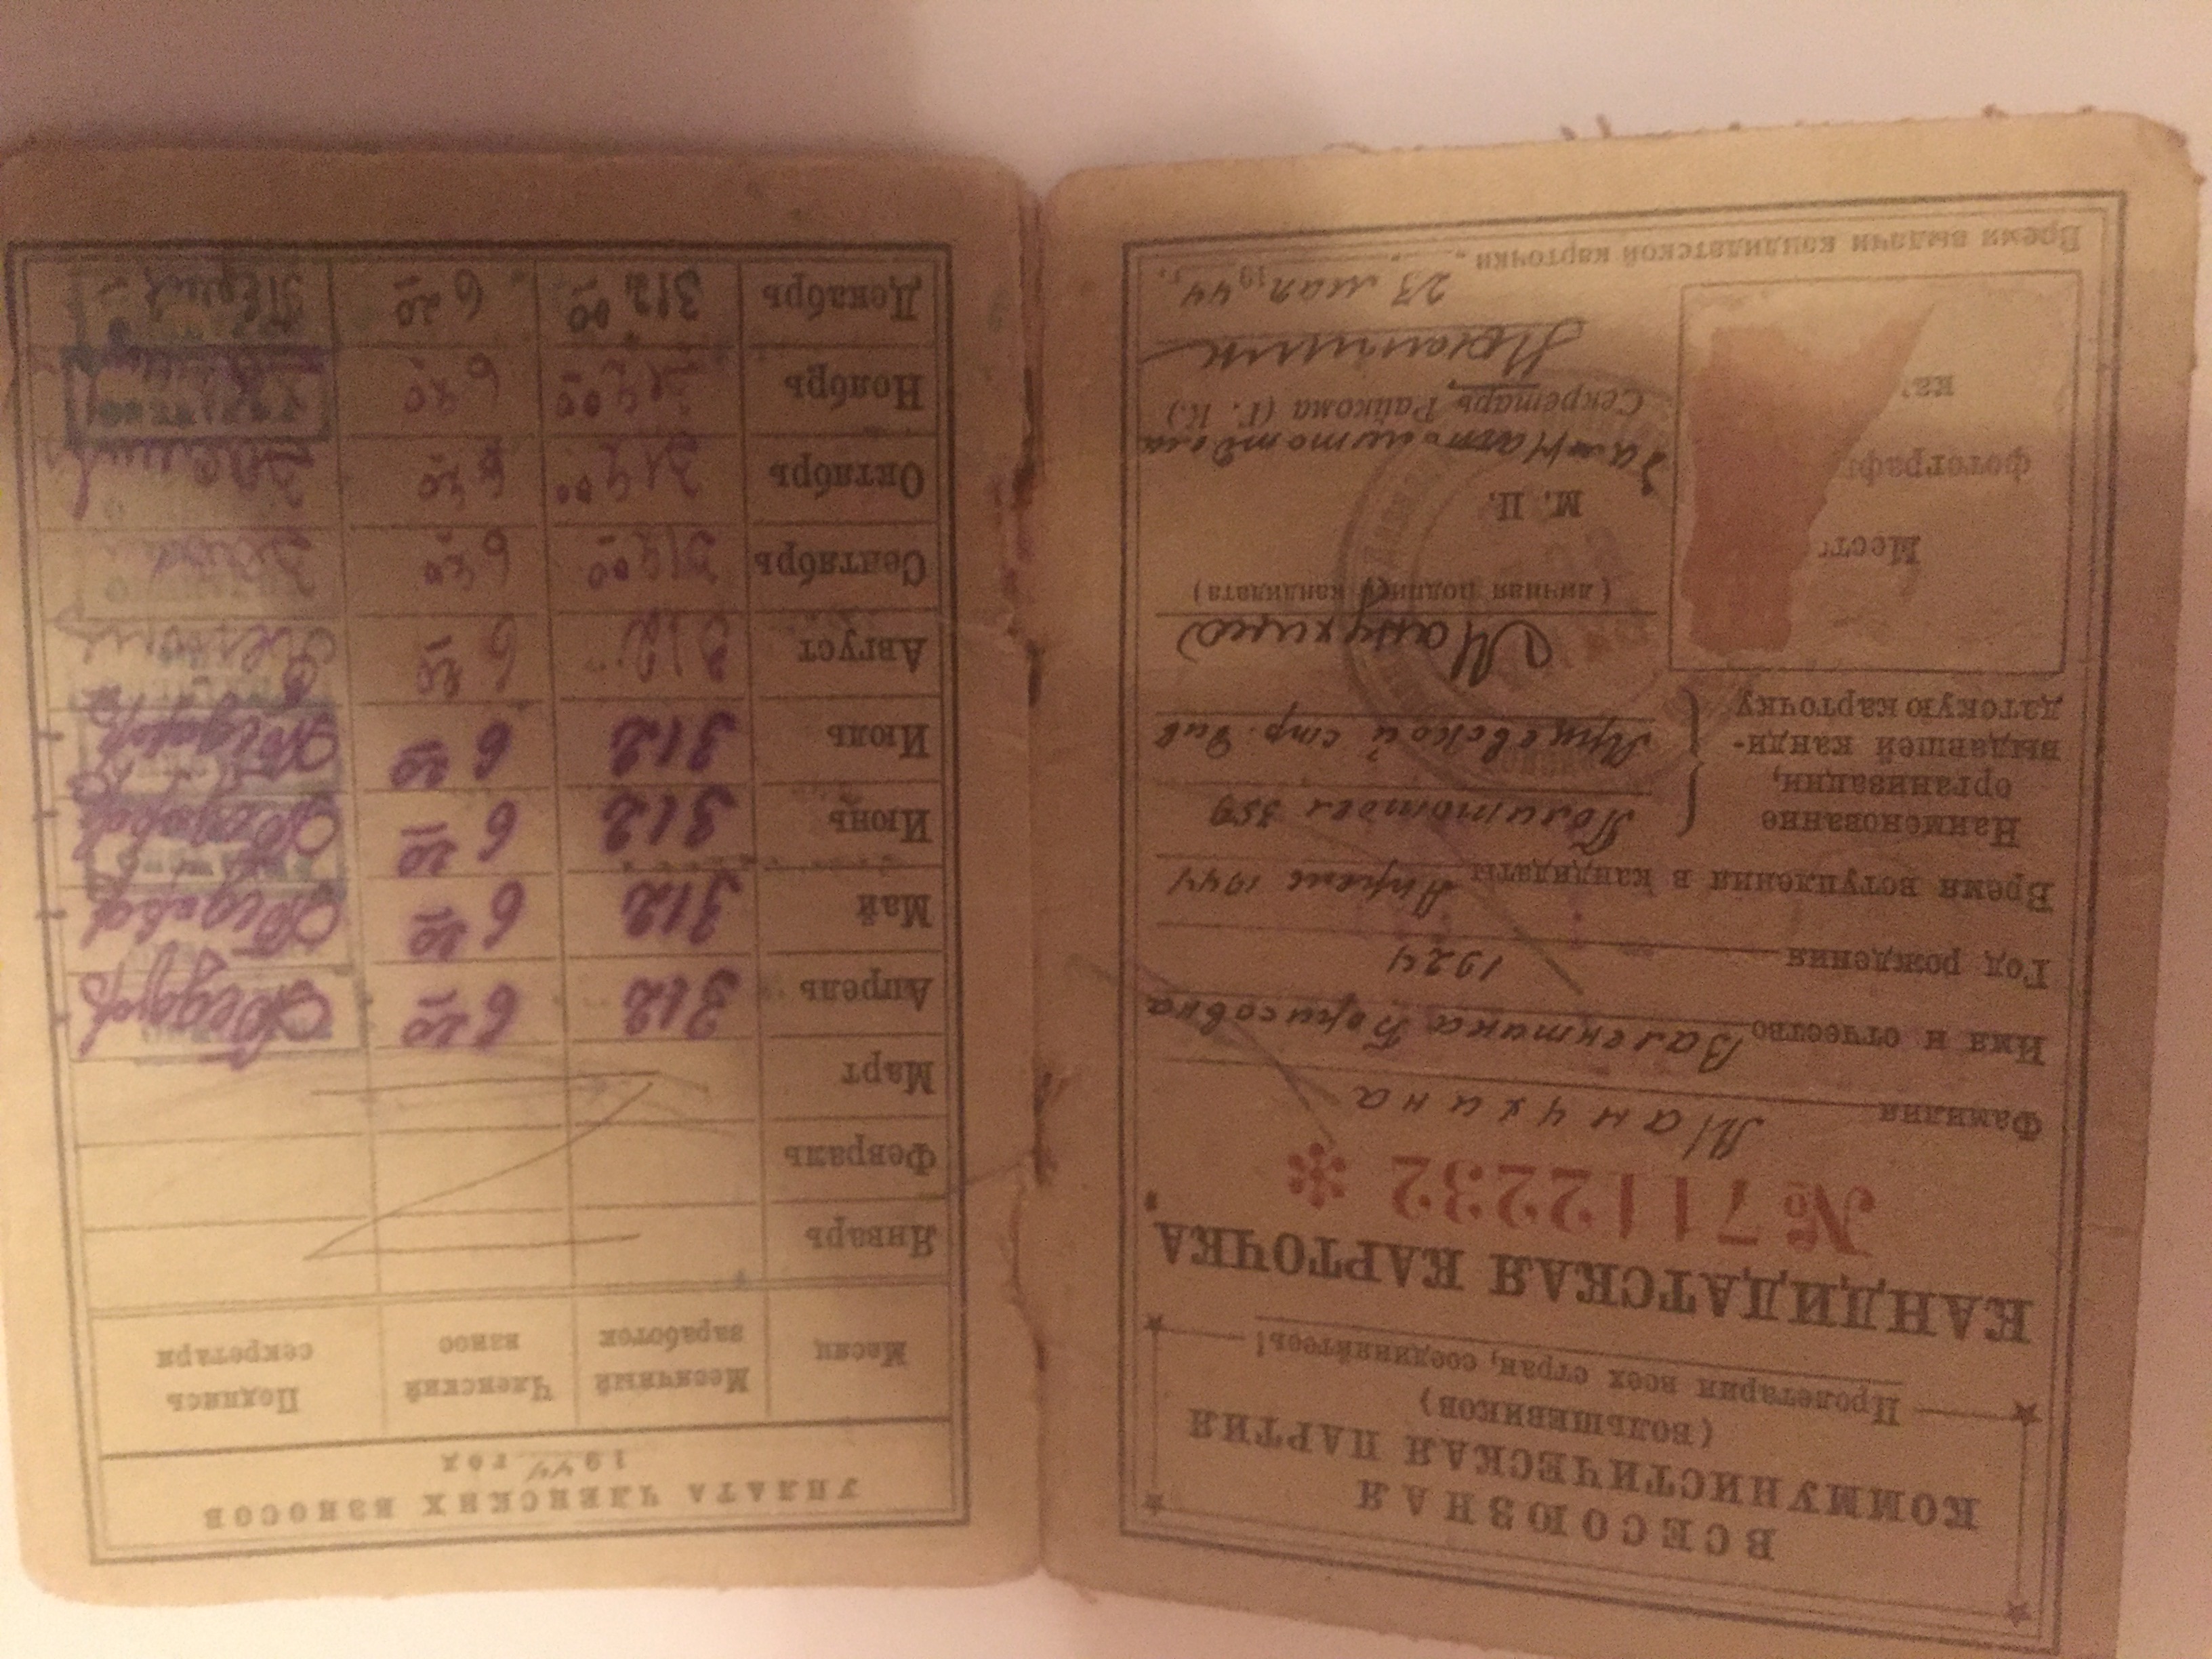 ВСЕСОЮЗНАЯ
КОММУНИСТИЧЕСКАЯ ПАРТИЯ
(БОЛЬШЕВИКОВ)
Пролетарии всех стран, соединяйтесь!
КАНДИДАТСКАЯ КАРТОЧКА
№ 7112232 *
Фамилия Манухина
Имя и отчество Валентина Борисовна
Год рождения 1924
Время вступления в кандидаты Апрель 1944
Наименование организации, выдавшей кандидатскую карточку
Политотдел 359
стр. див
Место
фотографи
ка
Манухина
(личная подпись кандидата)
М. П.
Секретарь Райкома (Г. К.)
23 мая 1944 г.
Время выдачи кандидатской карточки
УПЛАТА ЧЛЕНСКИХ ВЗНОСОВ
1944 год
Месяц Месячный заработок Членский взнос Подпись секретаря
Январь
Февраль
Март
Апрель 312 6 20
Май 312 6 20
Июнь 312 6 20
Июль 312 6 20
Август 312 6 20
Сентябрь 312 00 6 20
Октябрь 6 20
Ноябрь 6 20
Декабрь 312 00 6 20